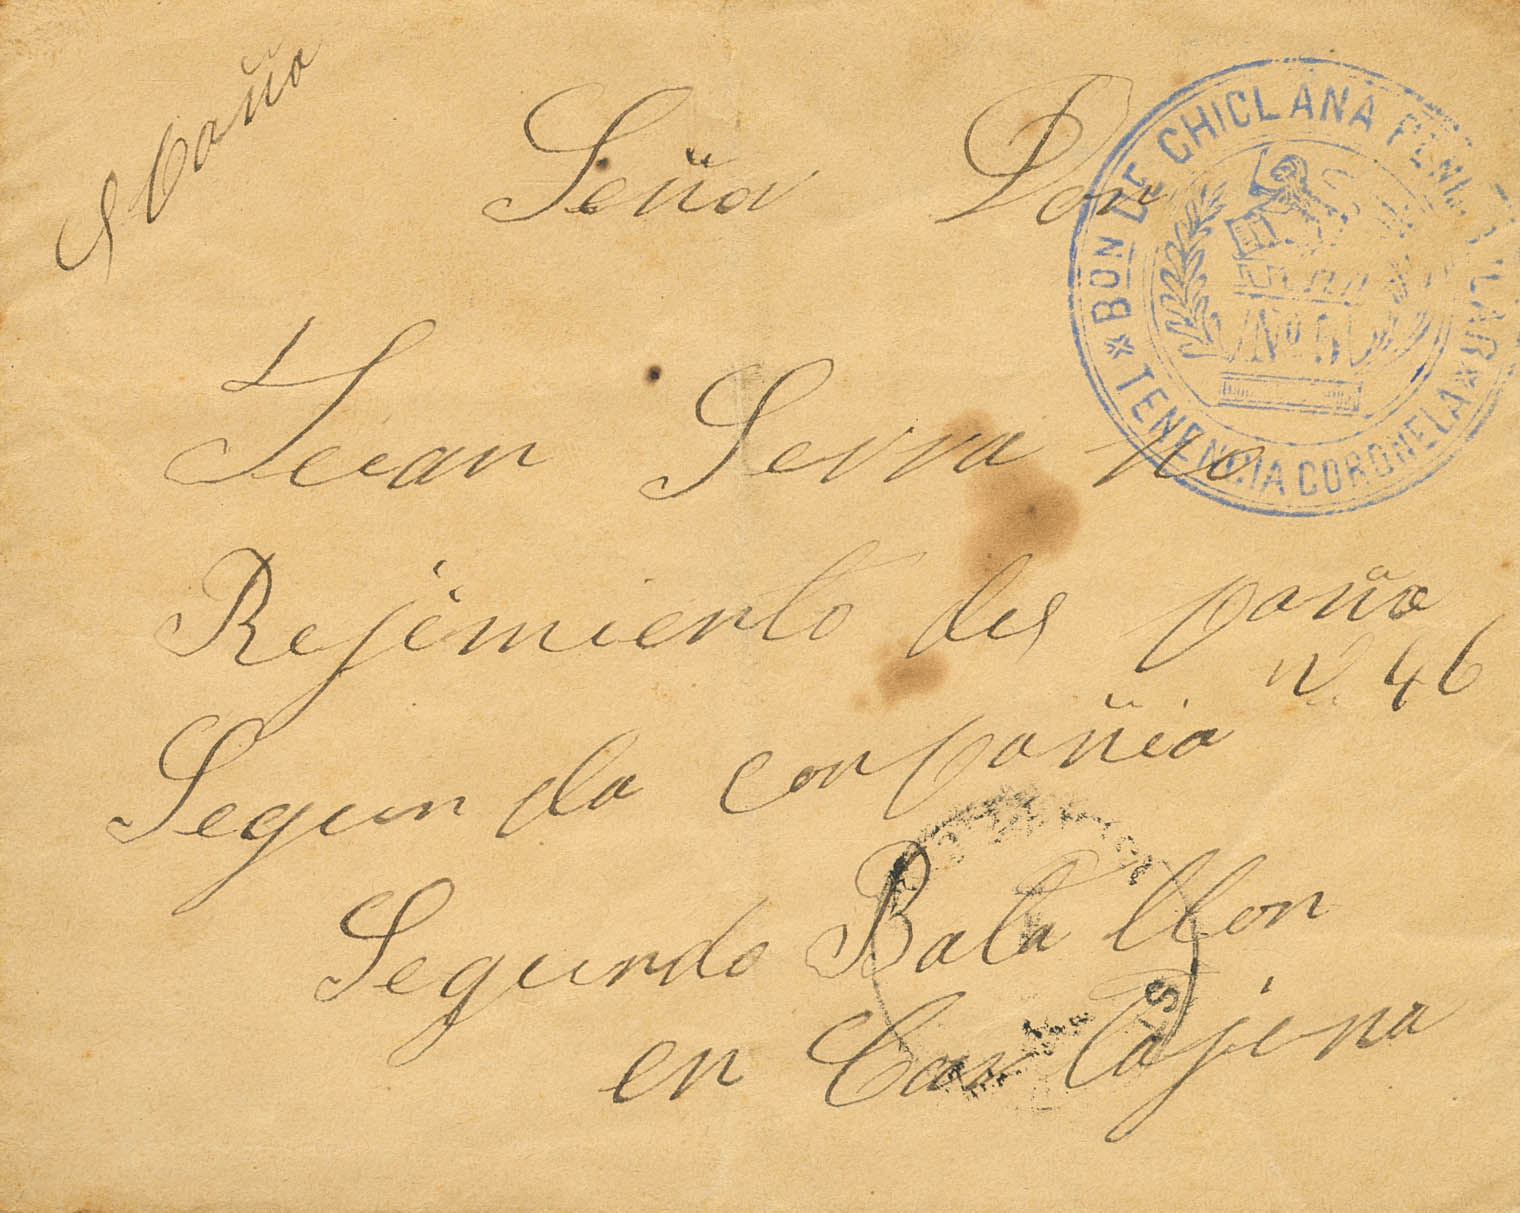 España
Seña Don
Juan Serra no
Rejimiento des paña
n. 46
Segun da conpañia
Segundo Bata llon
en Car tajena
* BON DE CHICLANA PENINSULAR *
Nº 5
TENENCIA CORONELA